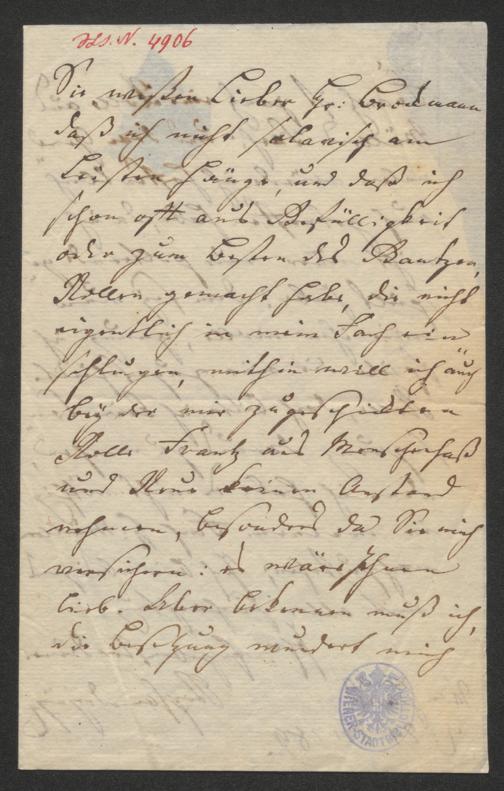 HS. N. 4906
Sie wißen Lieber Hr: Brockmann
daß ich nicht sclavisch am
Leisten hänge, und daß ich
schon oft aus Gefälligkeit
oder zum Besten des Gantzen,
Rollen gemacht habe, die nicht
eigentlich in mein Fach ein
schlugen, mithin will ich auch
bey der mir zugeschickten
Rolle Frantz aus Menschenhaß
und Reue keinen Anstand
nehmen, besonders da Sie mich
versichern: es wäre Ihnen
lieb. Aber bekennen muß ich,
die Besetzung wundert mich
WIENER-STADTBIBLIOTHEK